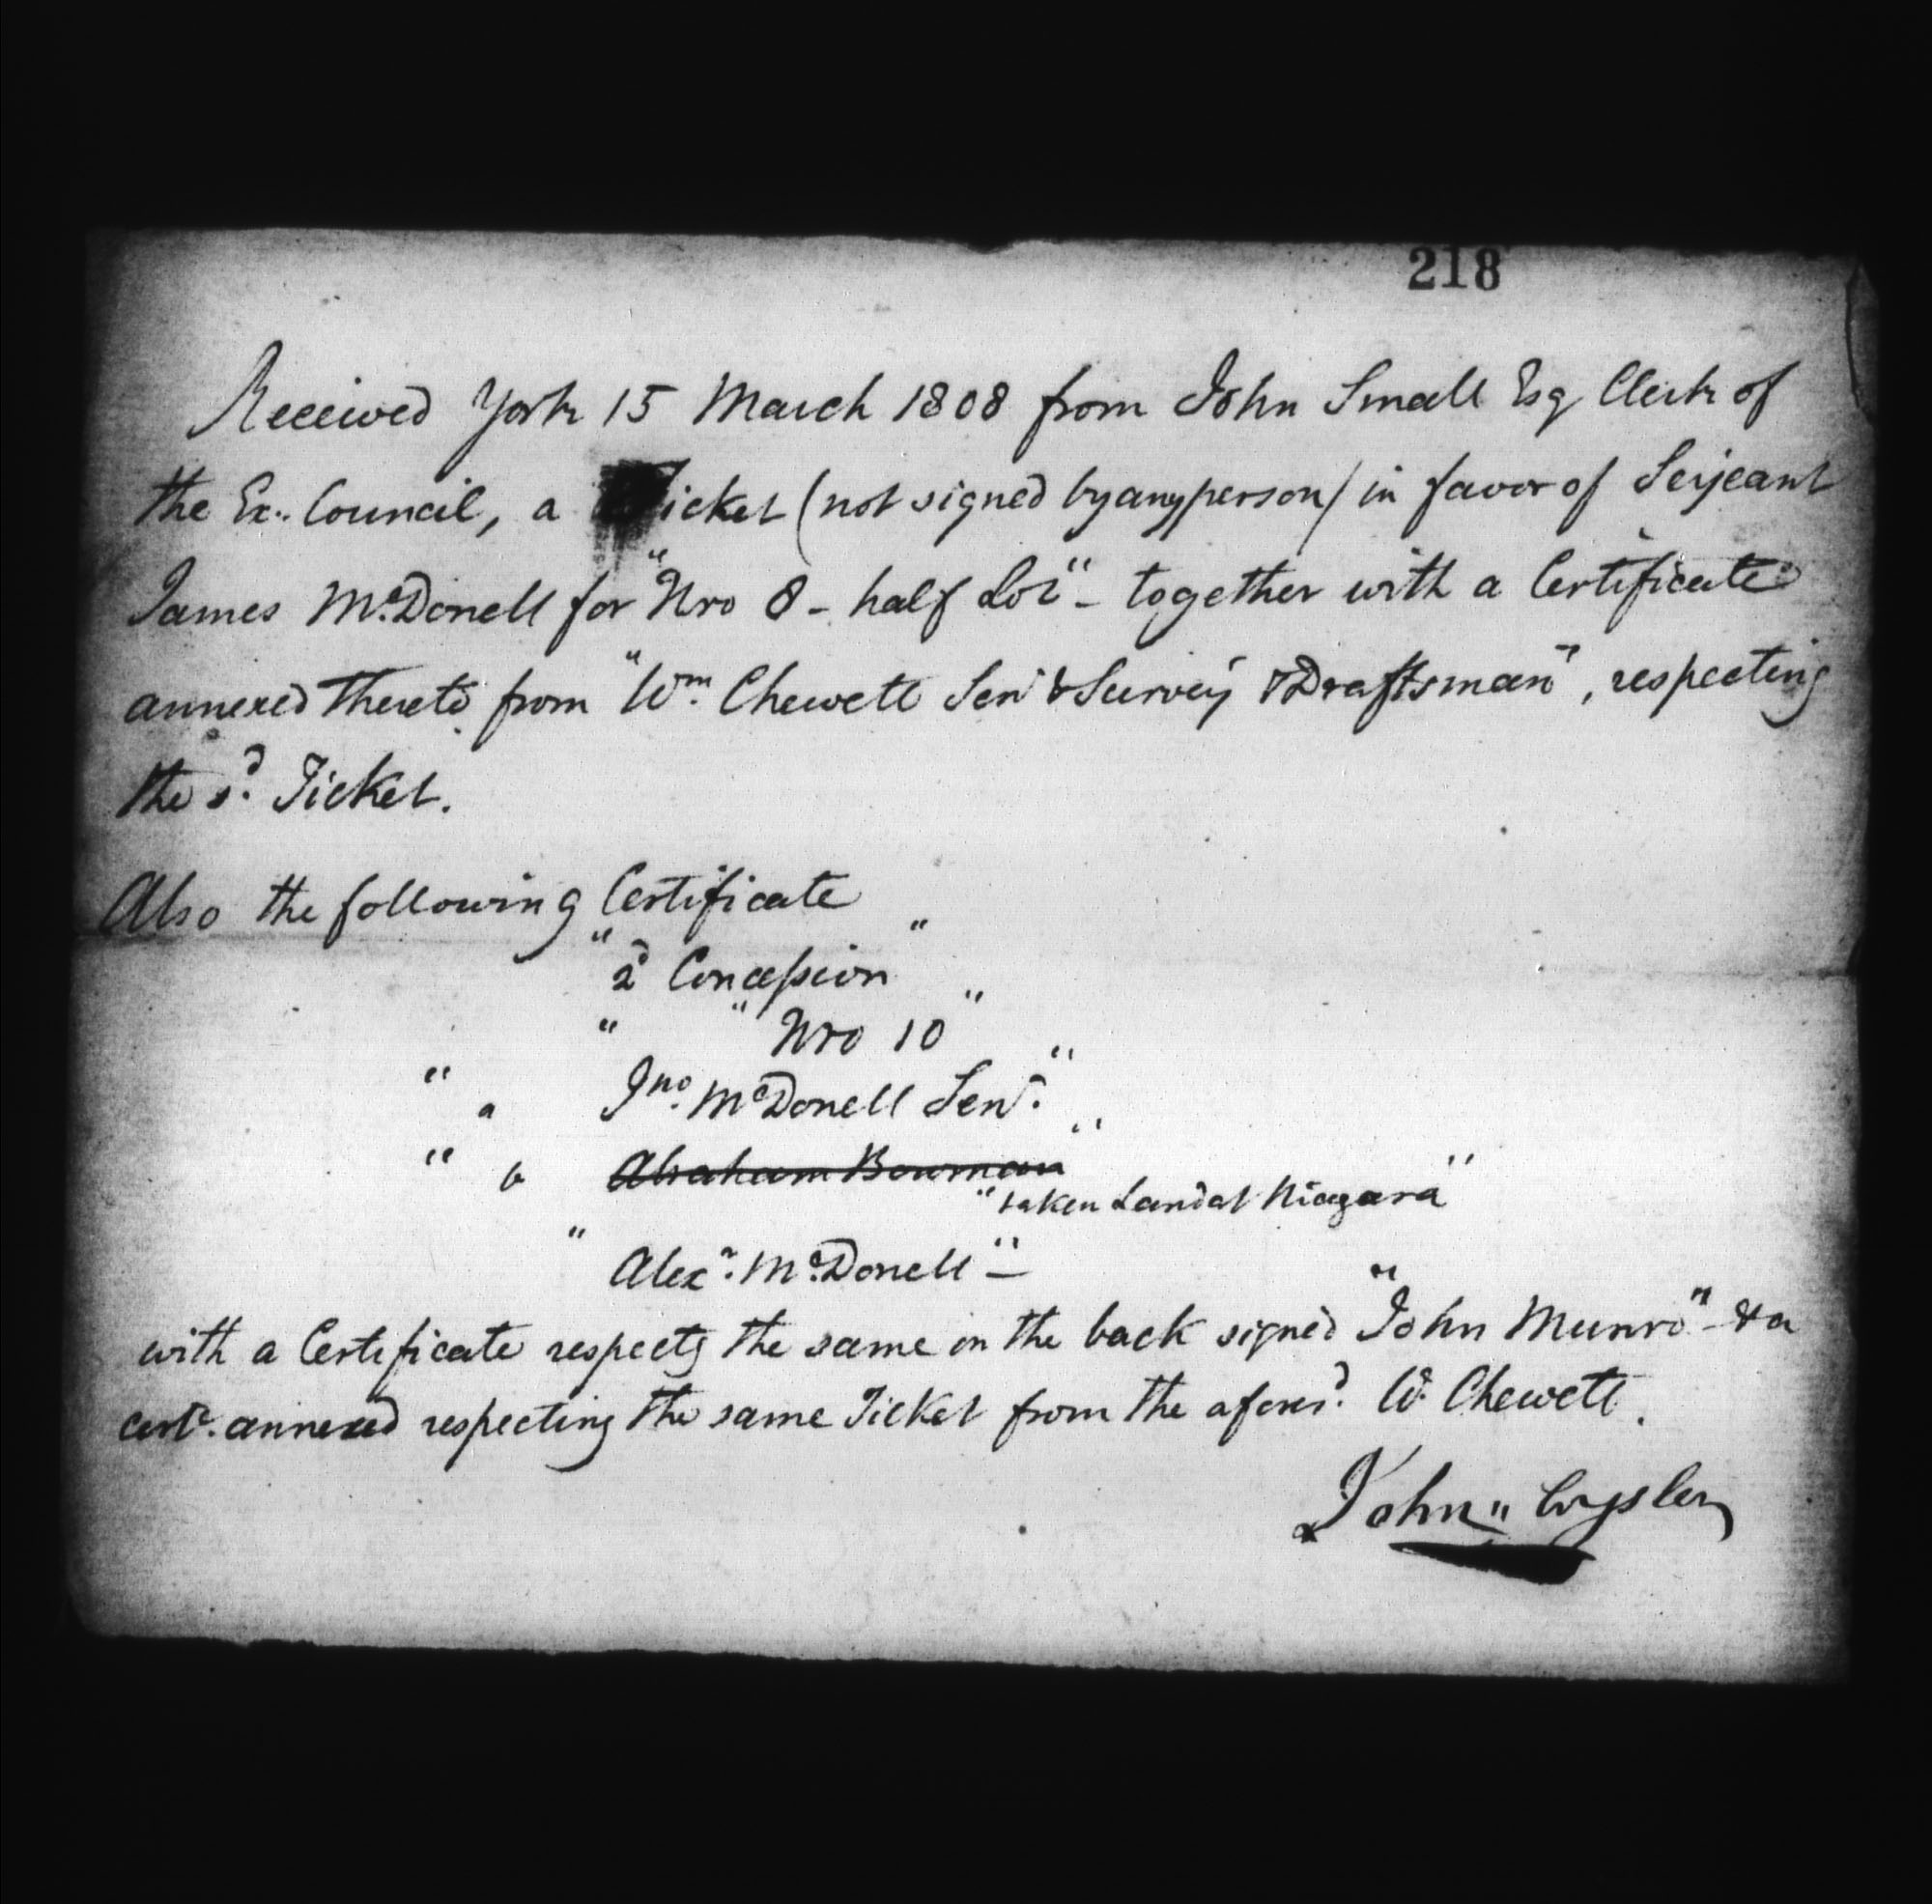 218
Received York 15 March 1808 from John Small Esq Clerk of
the Ex.. Council, a Ticket (not signed by any person) in favor of Serjeant
James McDonell for "Nro 8 - half Lot" - together with a Certificate
annexed thereto from "Wm. Chewett Senr & Survey & Draftsman", respecting
the sd. Ticket.
Also the following Certificate
"2d Concession"
" " Nro 10"
" a Jno. McDonell Senr."
" b Abraham Bowman"
"taken Land at Niagara"
" Alexr. McDonell" -
with a Certificate respectg the same on the back signed "John Munro" - & a
certe. annexed respecting the same Ticket from the aforesd. W. Chewett.
John " Crysler